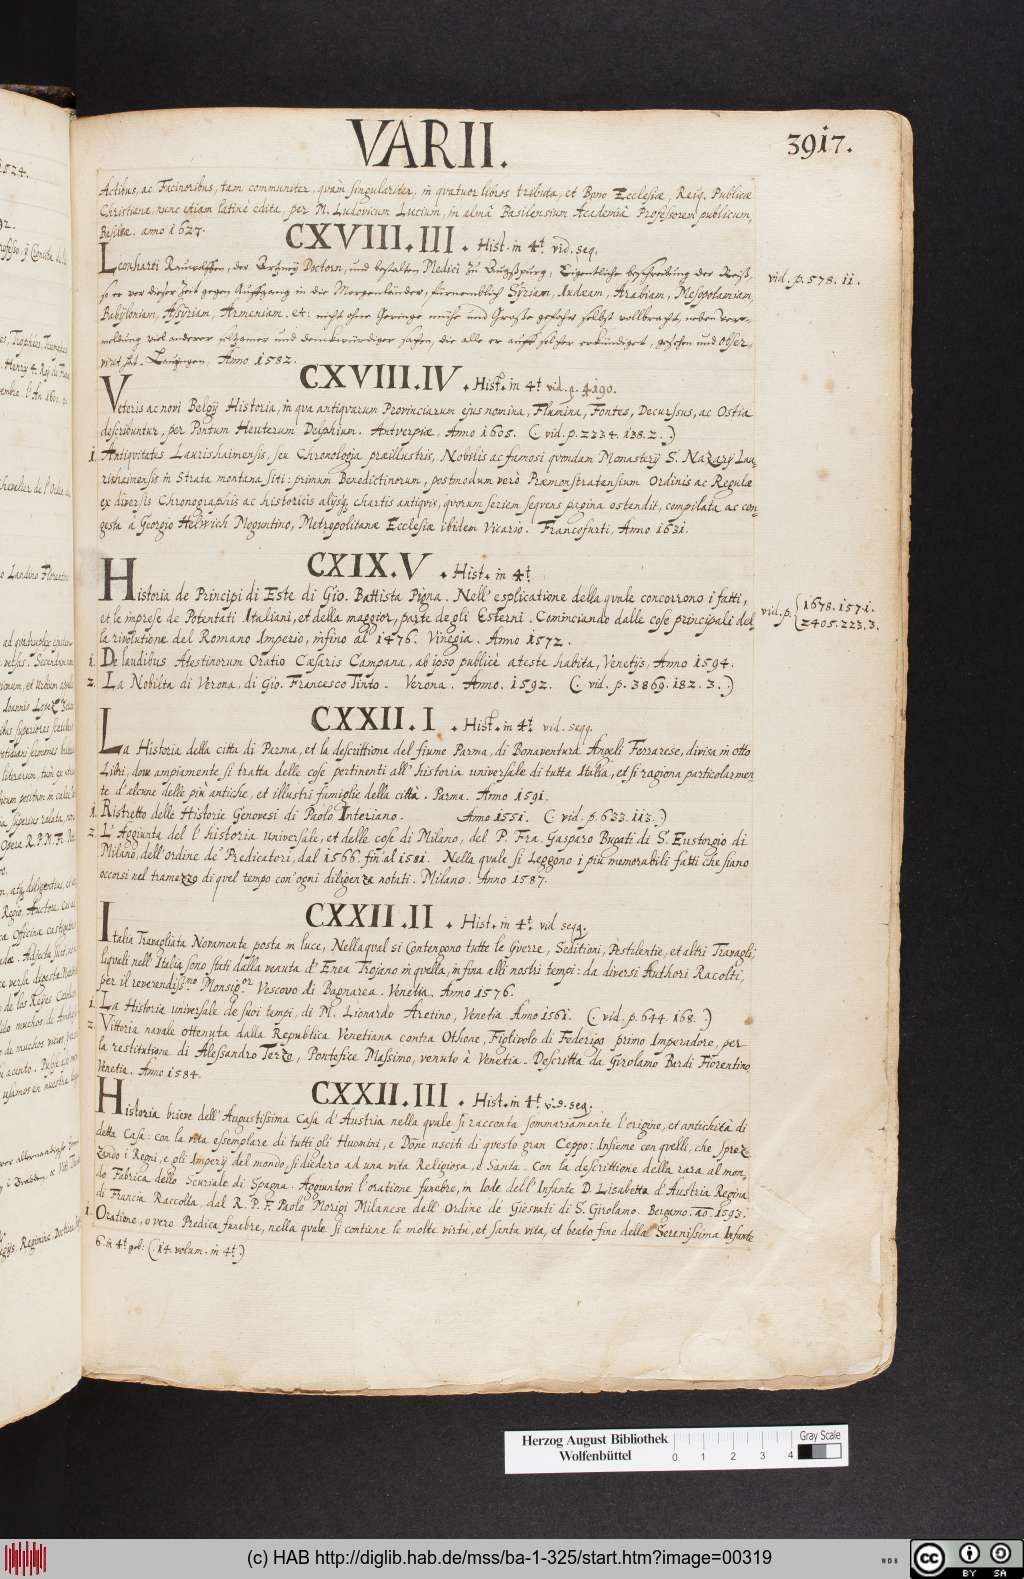 VARII.
3917.
Actibus, ac Facinoribus, tam communiter, quàm singulariter, in quatuor libros tributa, et Bono Ecclesiæ, Reiq. Publicæ
Christianæ, nunc etiam latinè edita, per M. Ludovicum Lucium, in almâ Basileensium Academiâ Professorem publicum,
Basileæ. anno 1627.
CXVIII.III. Hist. in 4t. vid. seq.
Leonharti Rauwolffen, der Artzney Doctorn, und bestalten Medici zu Augspurg, Eigentliche beschreibung der Reiß,
so er vor dieser Zeit gegen Auffgang in die Morgenländer, fürnemblich Syriam, Iudæam, Arabiam, Mesopotamiam,
Babyloniam, Assyriam, Armeniam. etc: nicht ohne Geringe mühe und Grosse gefahr selbst vollbracht, neben ver-
meldung viel anderer seltzamer und denckwürdiger sachen, die alle er auff solcher erkündiget, gesehen und Obser-
virt hat. Laugingen, Anno 1582.
vid. p. 578. 11.
CXVIII.IV. Hist. in 4t vid.
Veteris ac novi Belgÿ Historia, in qva antiqvarum Provinciarum ejus nomina, Flumina, Fontes, Decursus, ac Ostia
describuntur, per Pontum Heuterum Delphium. Antverpiæ, Anno 1605. (. vid. p. 2234. 138. 2. .)
1. Antiqvitates Laurishaimensis, seu Chronologia præillustris, Nobilis ac famosi qvondam Monasterÿ S. Nazarÿ Lau-
rishaimensis in Strata montana siti: primùm Benedictinorum, postmodum verò Præmonstratensium Ordinis ac Regulæ
ex diversis Chronographis ac historicis alÿsq. chartis antiqvis, qvorum seriem seqvens pagina ostendit, compilata ac con-
gesta à Georgio Helwich Moguntino, Metropolitanæ Ecclesiæ ibidem Vicario. Francofurti, Anno 1631.
CXIX.V. Hist. in 4t
Historia de Principi di Este di Gio. Battista Pigna. Nell' esplicatione della qvale concorrono i fatti,
et le imprese de Potentati Italiani, et della maggior, parte degli Esterni. Cominciando dalle cose principali del-
la rivolutione del Romano Imperio, infino al 1476. Vinegia. Anno 1572.
vid. p. { 1678. 157. 1.
2405. 223. 3.
1. De laudibus Atestinorum Oratio Cæsaris Campana, ab ipso publicè ateste habita, Venetÿs, Anno 1594.
2. La Nobilta di Verona, di Gio. Francesco Tinto. Verona. Anno. 1592. (. vid. p. 3869. 182. 3. .)
CXXII.I. Hist. in 4t. vid. seqq.
La Historia della citta di Parma, et la descrittione del fiume Parma, di Bonaventura Angeli Ferrarese, divisa in otto
Libri, dove ampiamente si tratta delle cose pertinenti all' historia universale di tutta Italia, et si ragiona particolarmen
te d'alcune delle più antiche, et illustri famiglie della città. Parma. Anno 1591.
1. Ristretto delle Historie Genovesi di Paolo Interiano. Anno 1551. (. vid. p. 633. 113. .)
2. L' Aggiunta del l' historia universale, et delle cose di Milano, del P. Fra. Gasparo Bugati di S. Eustorgio di
Milano, dell' ordine de' Predicatori, dal 1566. fin' al 1581. Nella qvale si Leggono i più memorabili fatti che siano
occorsi nel tramezzo di qvel tempo con' ogni diligenza notati. Milano. Anno 1587.
CXXII.II. Hist. in 4t. vid seqq.
Italia Travagliata Novamente posta in luce, Nellaqval si Contengono tutte le Gverre, Seditioni, Pestilentie, et altri Travagli,
liqvali nell' Italia sono stati dalla venuta d' Enea Trojano in qvella, infina alli nostri tempi: da diversi Authori Racolti,
per il reverendiss.mo Monsig.or Vescovo di Bagnarea. Venetia. Anno 1576.
1. La Historia universale de suoi tempi, di M. Lionardo Aretino, Venetia Anno 1561. (. vid. p. 644. 168. .)
2. Vittoria navale ottenuta dalla Republica Venetiana contra Othone, Figlivolo di Federigo primo Imperadore, per
la restitutione di Alessandro Terzo, Pontefice Massimo, venuto à Venetia. Descritta da Girolamo Bardi Fiorentino
Venetia. Anno 1584.
CXXII.III. Hist. in 4t. vid. seq.
Historia brieve dell' Augustissima Casa d' Austria nella qvale si racconta sommariamente l' origine, et antichità di
detta Casa: con la vita essemplare di tutti gli Huomini, e Done usciti di qvesto gran Ceppo: Insieme con qvelli, che Sprez
zando i Regni, e gli Imperÿ del mondo, si diedero ad una vita Religiosa, e Santa. Con la descrittione della rara al mon-
do Fabrica dello Scuriale di Spagna. Aggiuntovi l' oratione funebre, in lode dell' Infante D. Lisabetta d' Austria Regina
di Francia Raccolta, dal R. P. F. Paolo Morigi Milanese dell' Ordine de Giesvati di S. Girolamo. Bergamo. ao. 1593.
1. Oratione, o vero Predica funebre, nella qvale si contiene le molte virtù, et santa vita, et beato fine della Serenissima Infante
6. in 4t (.14. volum. in 4t.)
Herzog August Bibliothek
Wolfenbüttel
0 1 2 3 4
Gray Scale
(c) HAB http://diglib.hab.de/mss/ba-1-325/start.htm?image=00319
WDB
CC BY SA